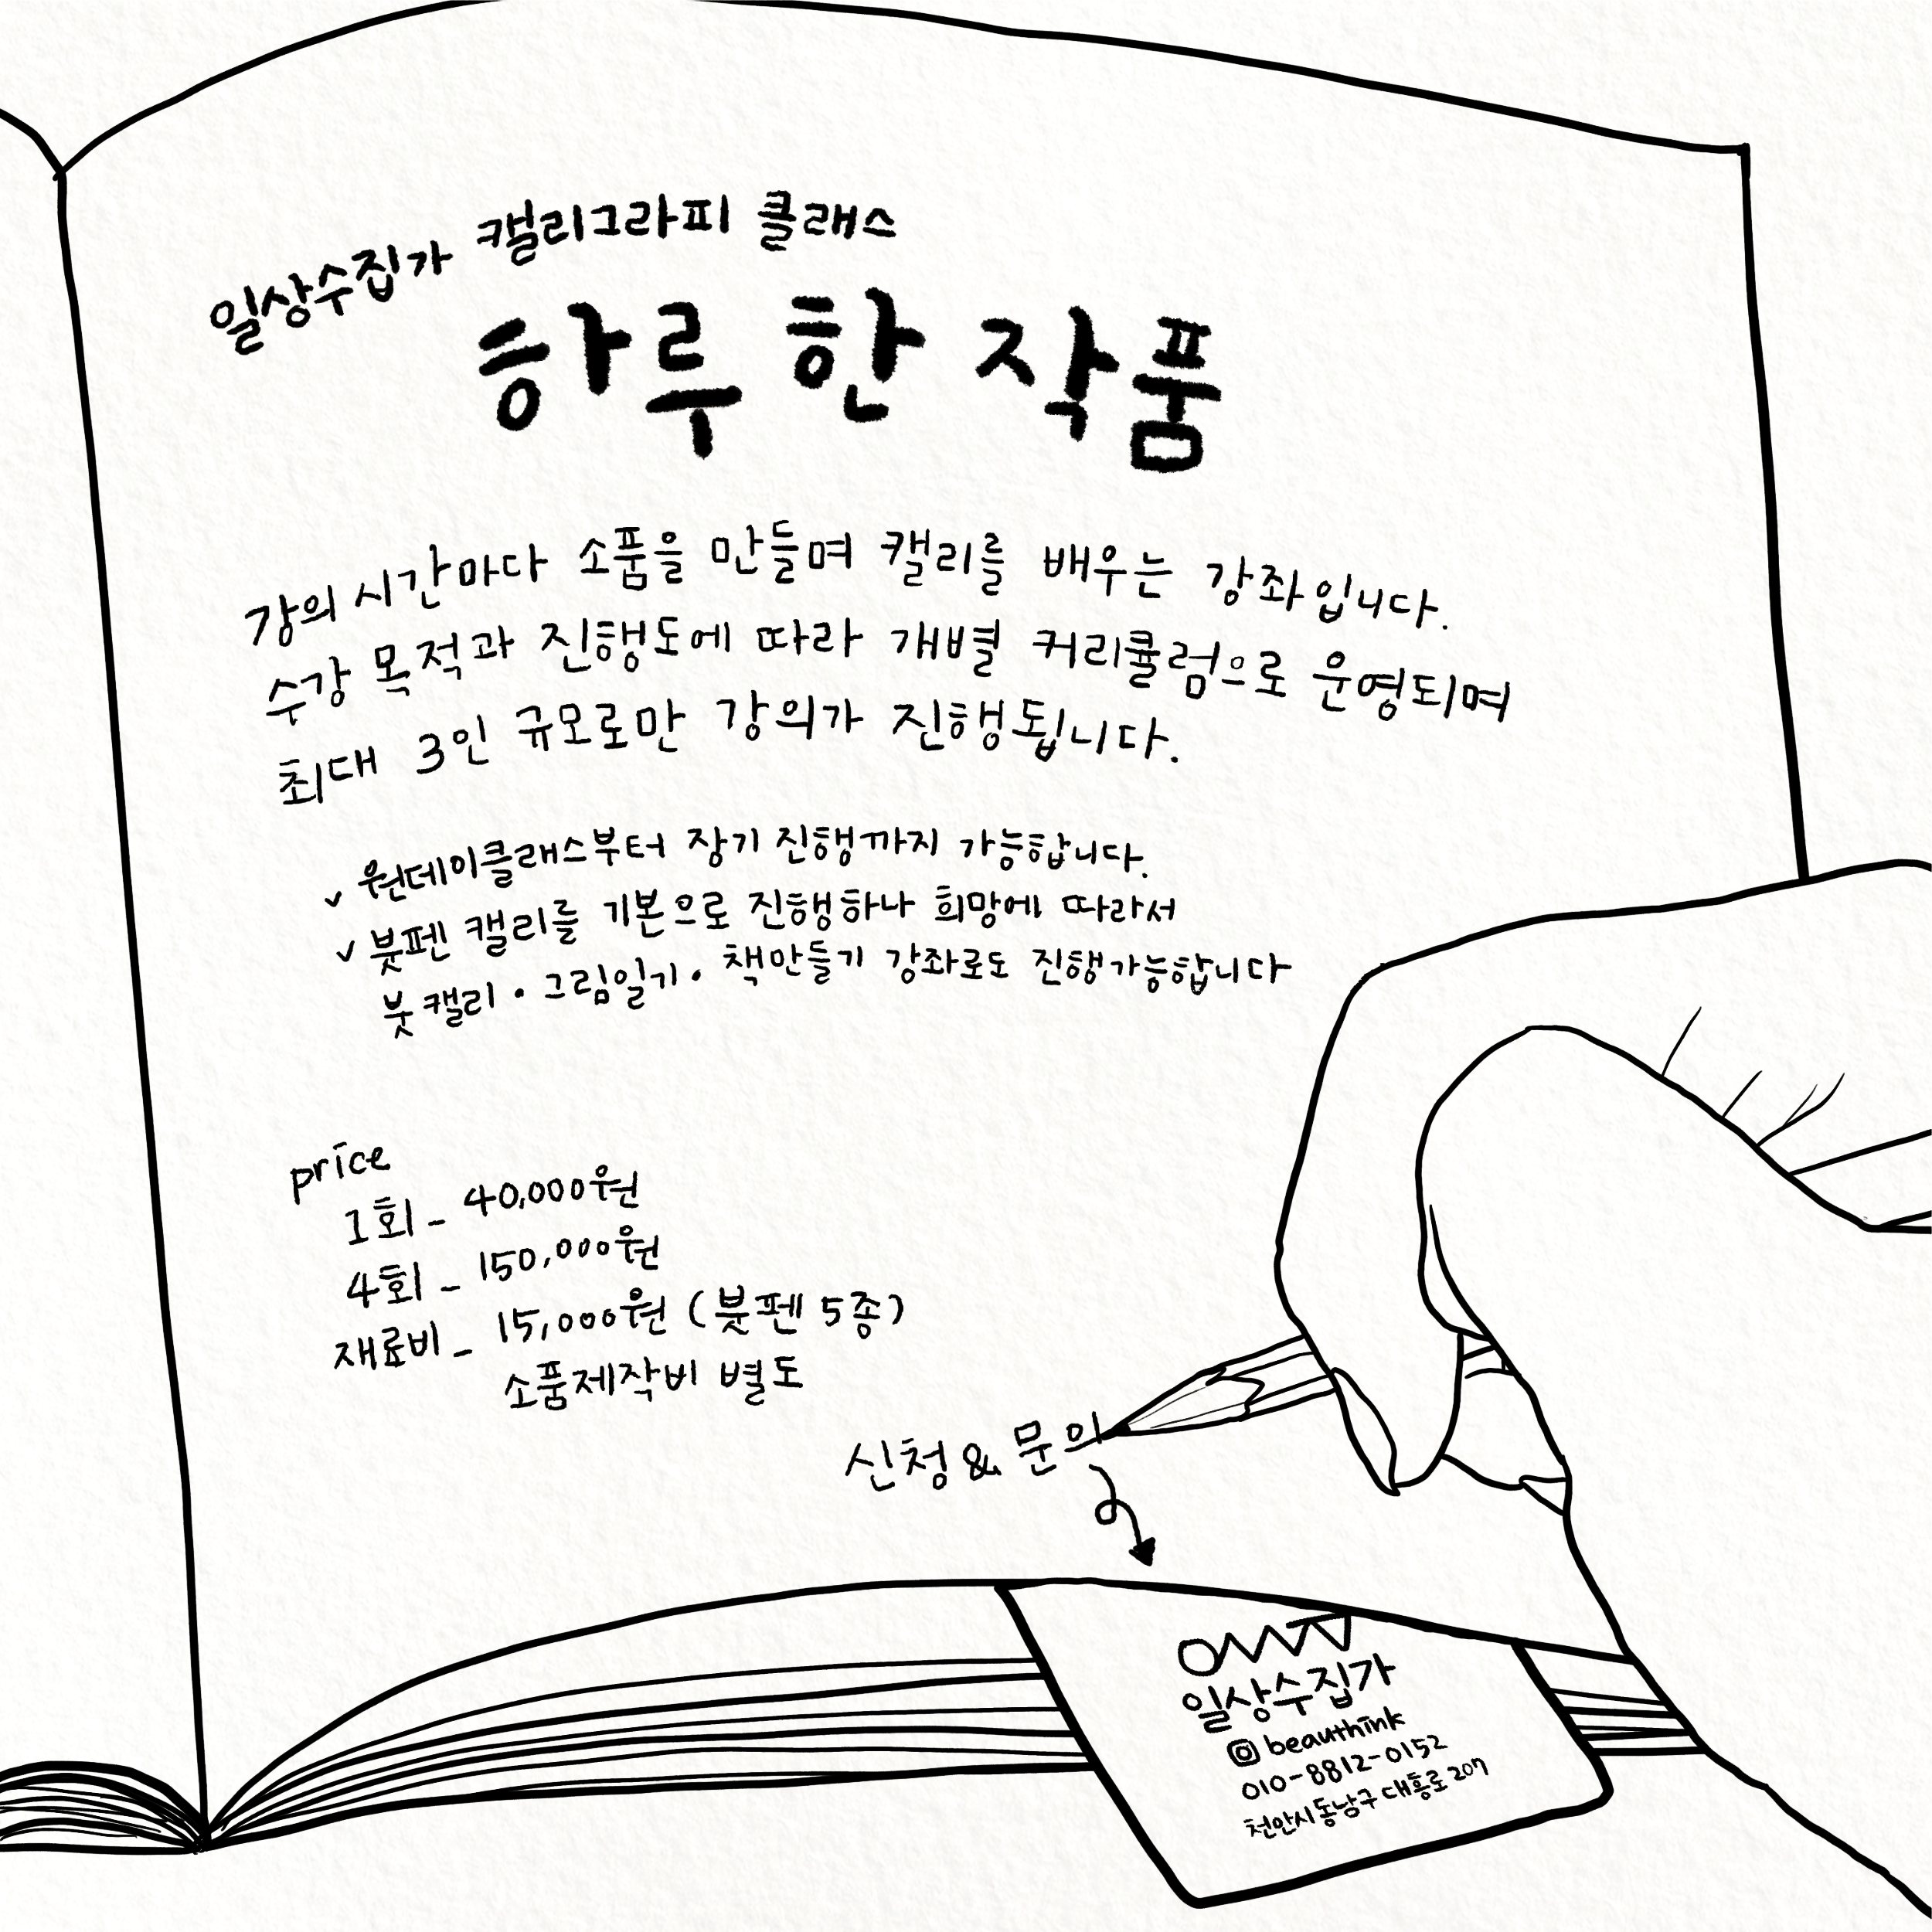 일상수집가 캘리그라피 클래스
하루 한 작품
강의 시간마다 소품을 만들며 캘리를 배우는 강좌입니다.
수강 목적과 진행도에 따라 개별 커리큘럼으로 운영되며
최대 3인 규모로만 강의가 진행됩니다.
✓ 원데이클래스부터 장기 진행까지 가능합니다.
✓ 붓펜 캘리를 기본으로 진행하나 희망에 따라서
붓캘리 • 그림일기 • 책만들기 강좌로도 진행가능합니다
price
1회 - 40,000원
4회 - 150,000원
재료비 - 15,000원 (붓펜 5종)
소품제작비 별도
신청 & 문의
일상수집가
beauthink
010-8812-0152
천안시 동남구 대흥로 207